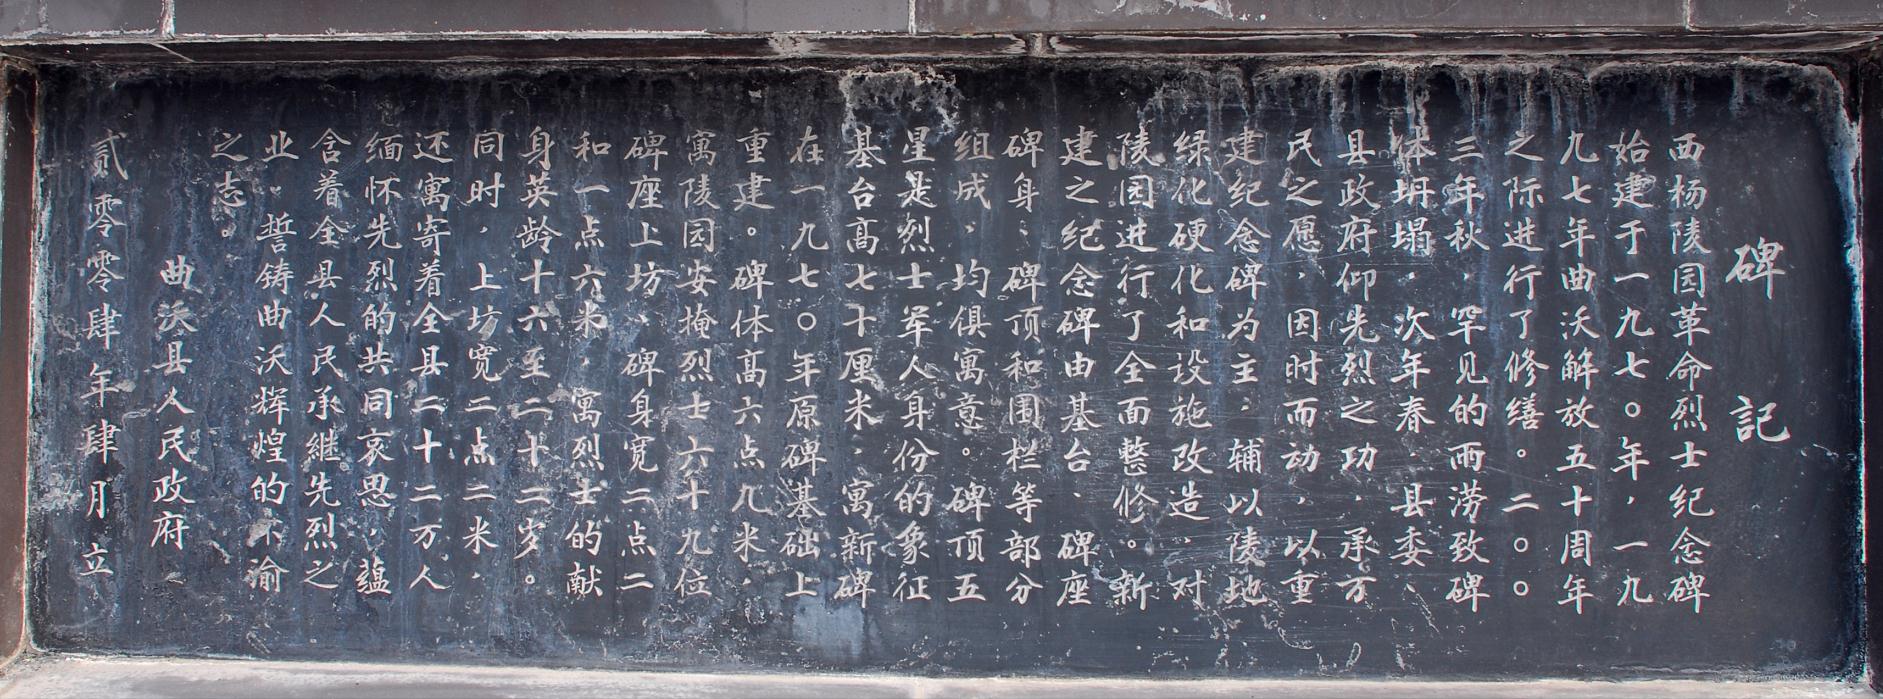 碑記
西杨陵园革命烈士纪念碑
始建于一九七〇年，一九
九七年曲沃解放五十周年
之际进行了修缮。二〇〇
三年秋，罕见的雨涝致碑
体坍塌。次年春，县委、
县政府仰先烈之功，承万
民之愿，因时而动，以重
建纪念碑为主；辅以陵地
绿化硬化和设施改造，对
陵园进行了全面整修。新
建之纪念碑由基台、碑座
碑身、碑顶和围栏等部分
组成，均俱寓意。碑顶五
星是烈士军人身份的象征
基台高七十厘米，寓新碑
在一九七〇年原碑基础上
重建。碑体高六点九米，
寓陵园安掩烈士六十九位
碑座上坊、碑身宽二点二
和一点六米，寓烈士的献
身英龄十六至二十二岁。
同时，上坊宽二点二米，
还寓寄着全县二十二万人
缅怀先烈的共同哀思，蕴
含着全县人民承继先烈之
业，誓铸曲沃辉煌的不渝
之志。
曲沃县人民政府
贰零零肆年肆月立